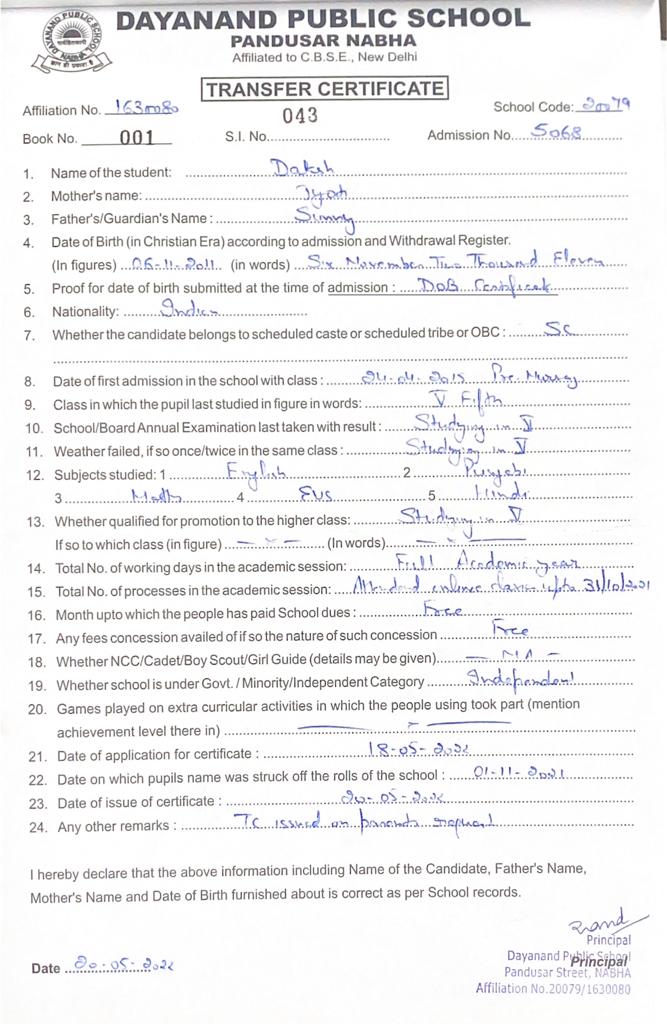 DAYANAND PUBLIC SCHOOL
PANDUSAR NABHA
Affiliated to C.B.S.E., New Delhi
TRANSFER CERTIFICATE
Affiliation No. 1630080 School Code: 20079
043
Book No. 001 S.I. No. Admission No. 5068
1. Name of the student: Daksh
2. Mother's name: Jyoti
3. Father's/Guardian's Name : Simmy
4. Date of Birth (in Christian Era) according to admission and Withdrawal Register.
(In figures) 06-11-2011 (in words) Six November Two Thousand Eleven
5. Proof for date of birth submitted at the time of admission : DoB Certificate
6. Nationality: Indian
7. Whether the candidate belongs to scheduled caste or scheduled tribe or OBC : SC
8. Date of first admission in the school with class : 24-04-2015 Pre Nursery
9. Class in which the pupil last studied in figure in words: V Fifth
10. School/Board Annual Examination last taken with result : Studying in V
11. Weather failed, if so once/twice in the same class : Studying in V
12. Subjects studied: 1 English 2 Punjabi
3 Math 4 EVS 5 Hindi
13. Whether qualified for promotion to the higher class: Studying in V
If so to which class (in figure) (In words)
14. Total No. of working days in the academic session: Full Academic year
15. Total No. of processes in the academic session: Attended online classes upto 31/10/2021
16. Month upto which the people has paid School dues : Free
17. Any fees concession availed of if so the nature of such concession Free
18. Whether NCC/Cadet/Boy Scout/Girl Guide (details may be given) - NA -
19. Whether school is under Govt. / Minority/Independent Category Independent
20. Games played on extra curricular activities in which the people using took part (mention
achievement level there in)
21. Date of application for certificate : 18-05-2022
22. Date on which pupils name was struck off the rolls of the school : 01-11-2021
23. Date of issue of certificate : 20-05-2022
24. Any other remarks : TC issued on parents request
I hereby declare that the above information including Name of the Candidate, Father's Name,
Mother's Name and Date of Birth furnished about is correct as per School records.
Principal
Dayanand Public School
Principal
Pandusar Street, NABHA
Affiliation No.20079/1630080
Date 20-05-2022